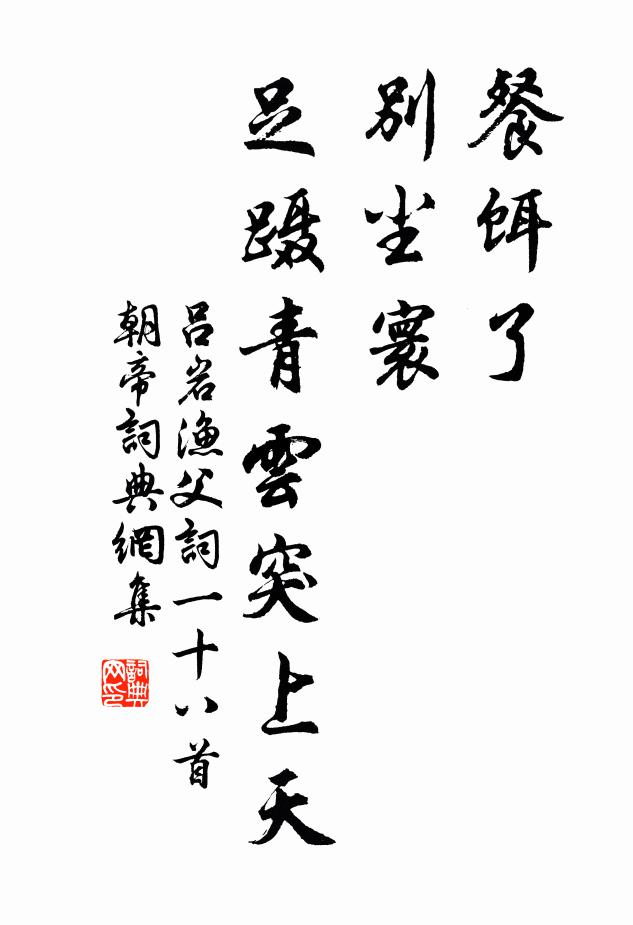 餐饵了
别尘寰
足蹑青雲突上天
吕岩渔父詞一十八首
朝帝詞典網集
詞典网印